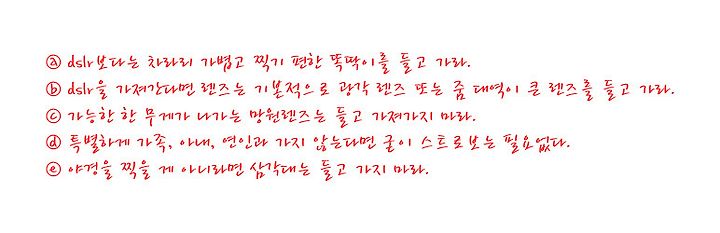 ⓐ dslr보다는 차라리 가볍고 찍기 편한 똑딱이를 들고 가라.
ⓑ dslr을 가져간다면 렌즈는 기본적으로 광각 렌즈 또는 줌 대역이 큰 렌즈를 들고 가라.
ⓒ 가능한 한 무게가 나가는 망원렌즈는 들고 가져가지 마라.
ⓓ 특별하게 가족, 아내, 연인과 가지 않는다면 굳이 스트로보는 필요없다.
ⓔ 야경을 찍을 게 아니라면 삼각대는 들고 가지 마라.